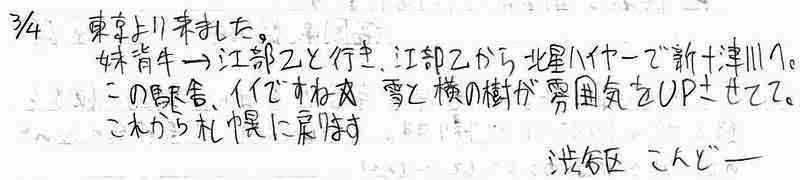 3/4 東京より来ました。
妹背牛→江部乙と行き、江部乙から北星ハイヤーで新十津川へ。
この駅舎、イイですね 雪と横の樹が雰囲気をUPさせてて。
これから札幌に戻ります
渋谷区 こんどー